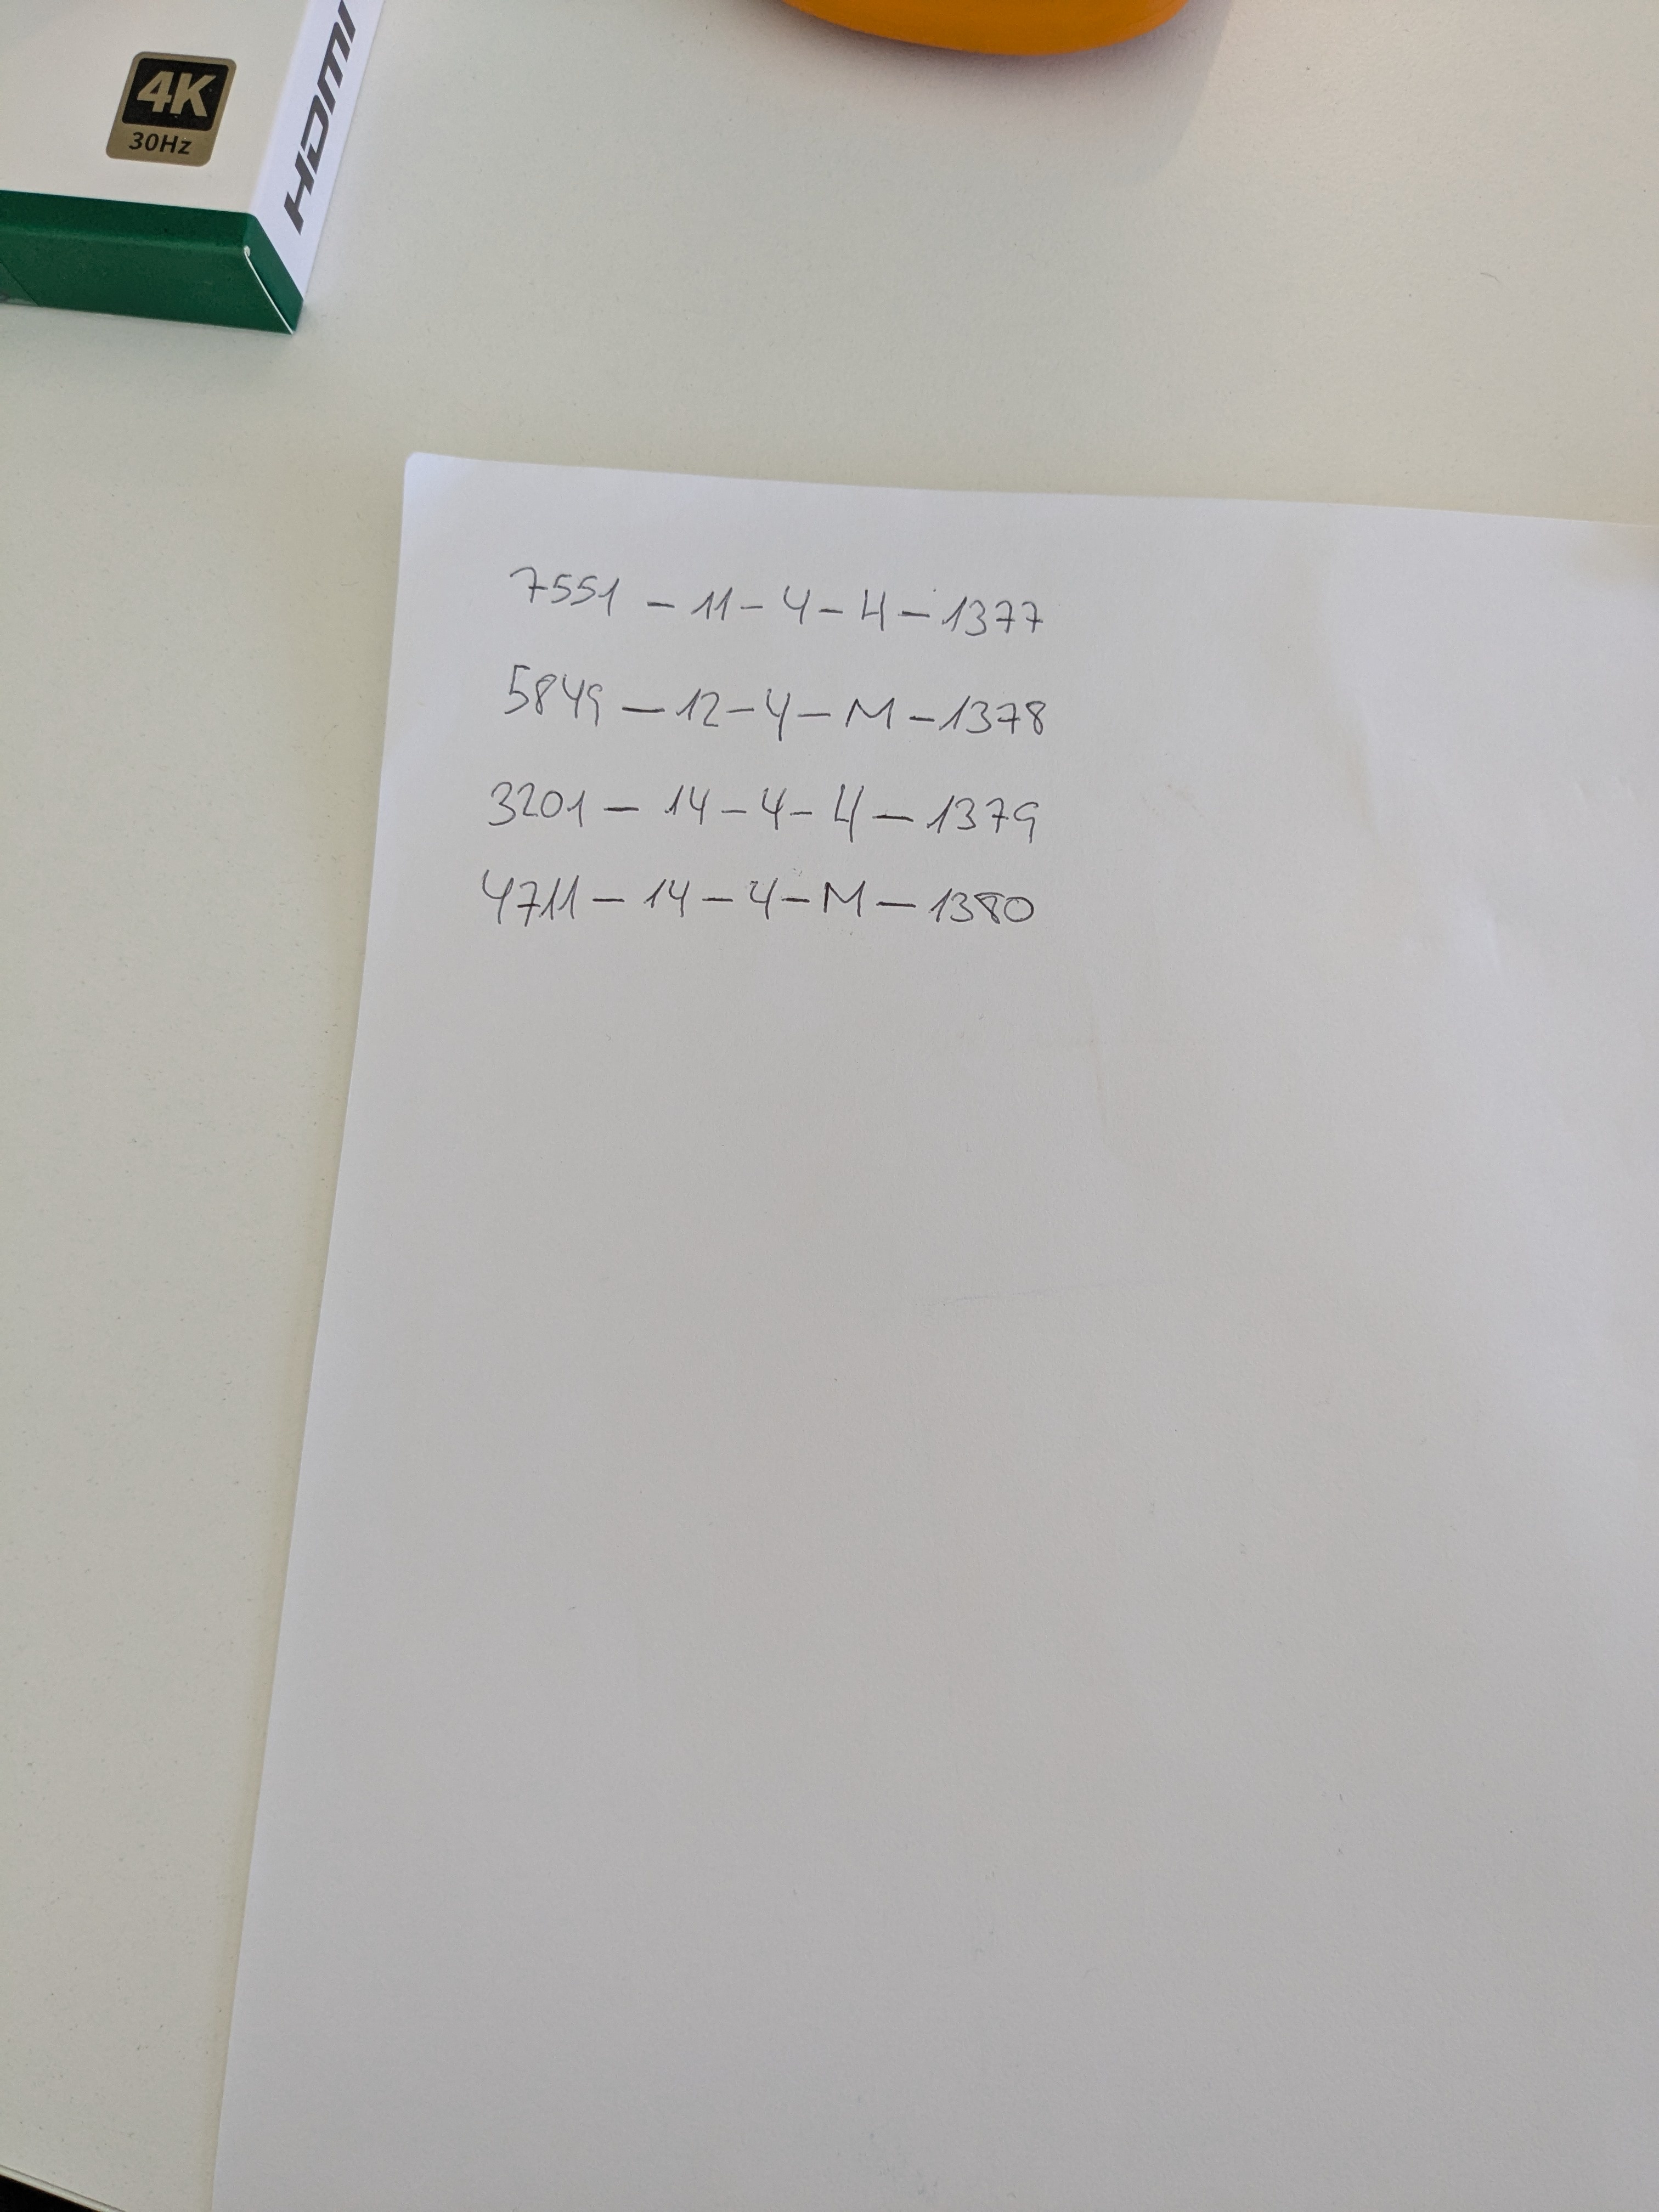 4K
30Hz
HDMI
7551 - 11 - 4 - H - 1377
5849 - 12 - 4 - M - 1378
3201 - 14 - 4 - H - 1379
4711 - 14 - 4 - M - 1380